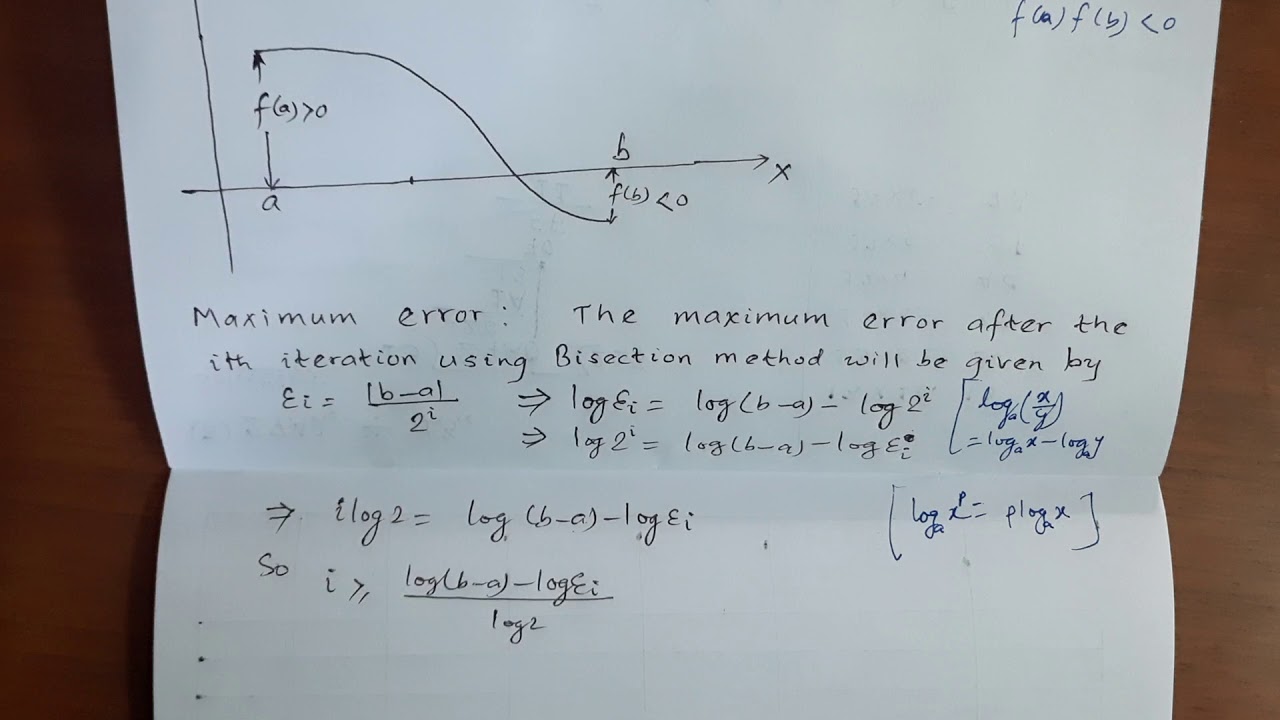 f(a) f(b) < 0
f(a)>0
b
x
a
f(b) <0
Maximum error: The maximum error after the
ith iteration using Bisection method will be given by
εi = |b-a| / 2^i ⇒ log εi = log(b-a) - log 2^i [log_a(x/y)
⇒ log 2^i = log(b-a) - log εi = log_a x - log_a y
⇒ i log 2 = log (b-a) - log εi [log_a x^p = p log_a x]
So i ≥ log(b-a) - log εi / log 2